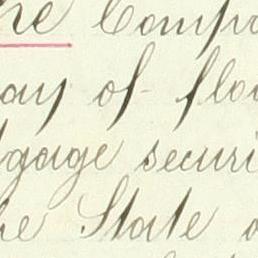 he Compa
ay of flo
gage securi
he State o